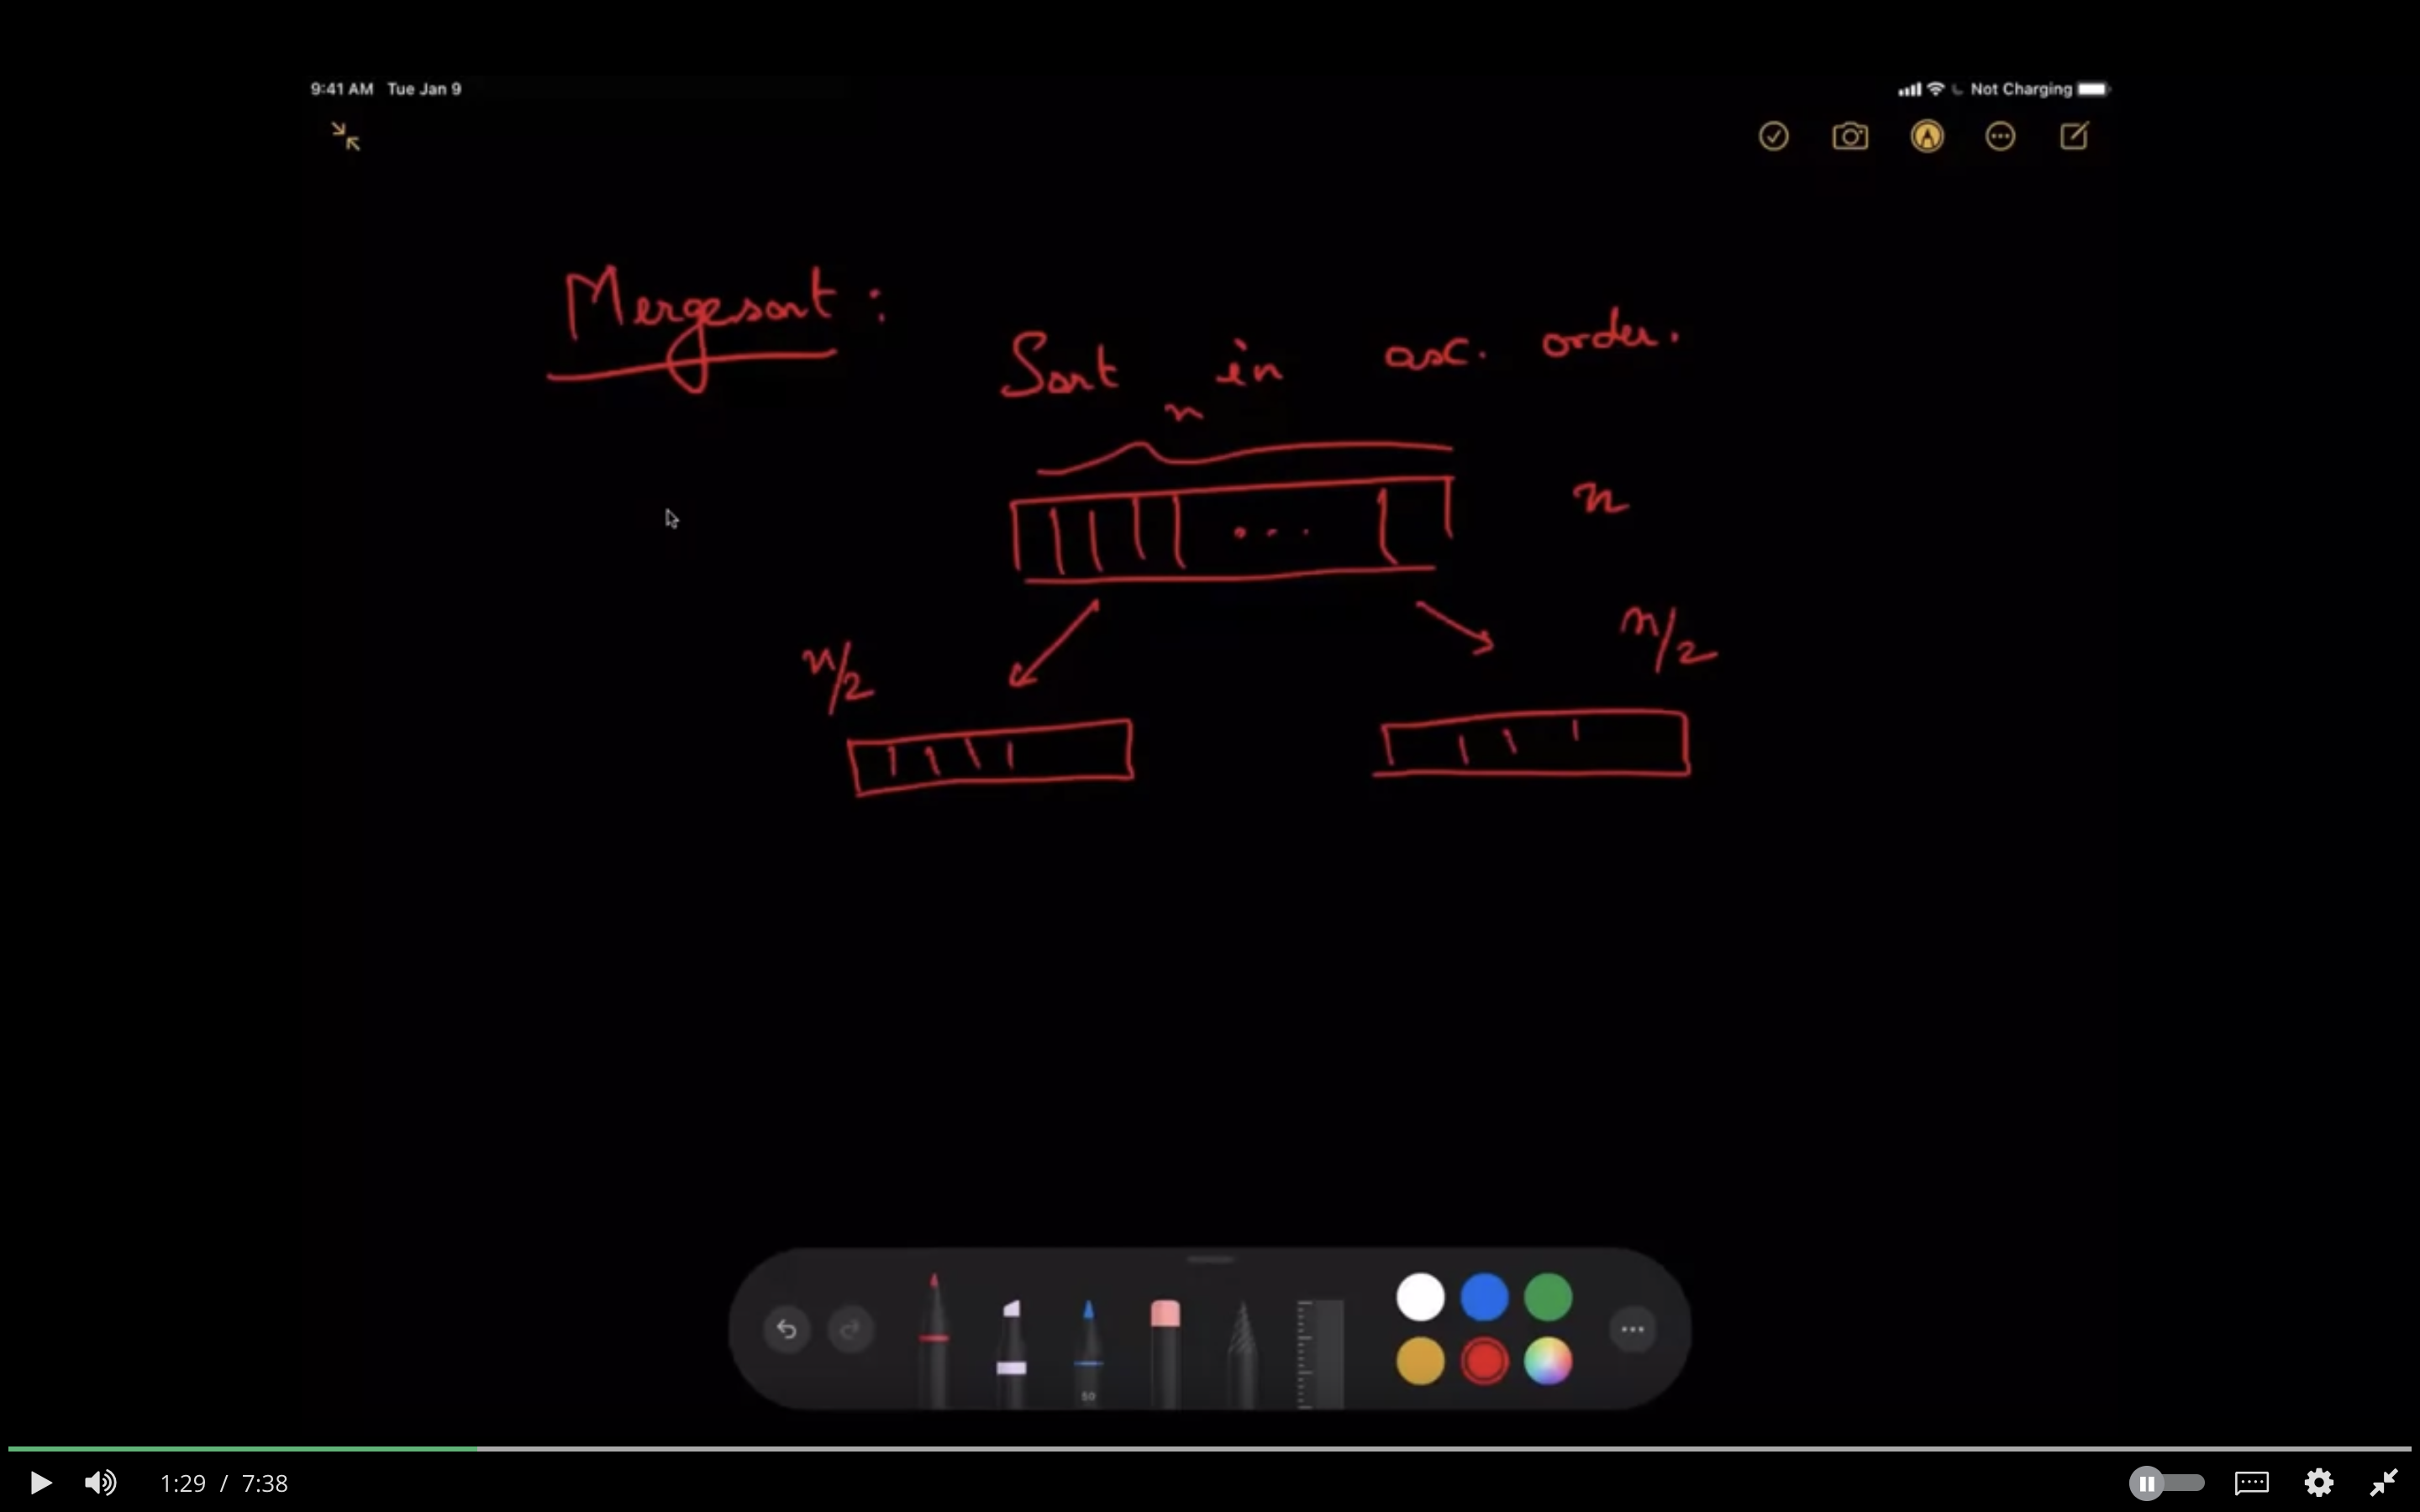 9:41 AM Tue Jan 9
Not Charging
Mergesort:
Sort in asc. order.
n
n
n/2
n/2
50
1:29 / 7:38